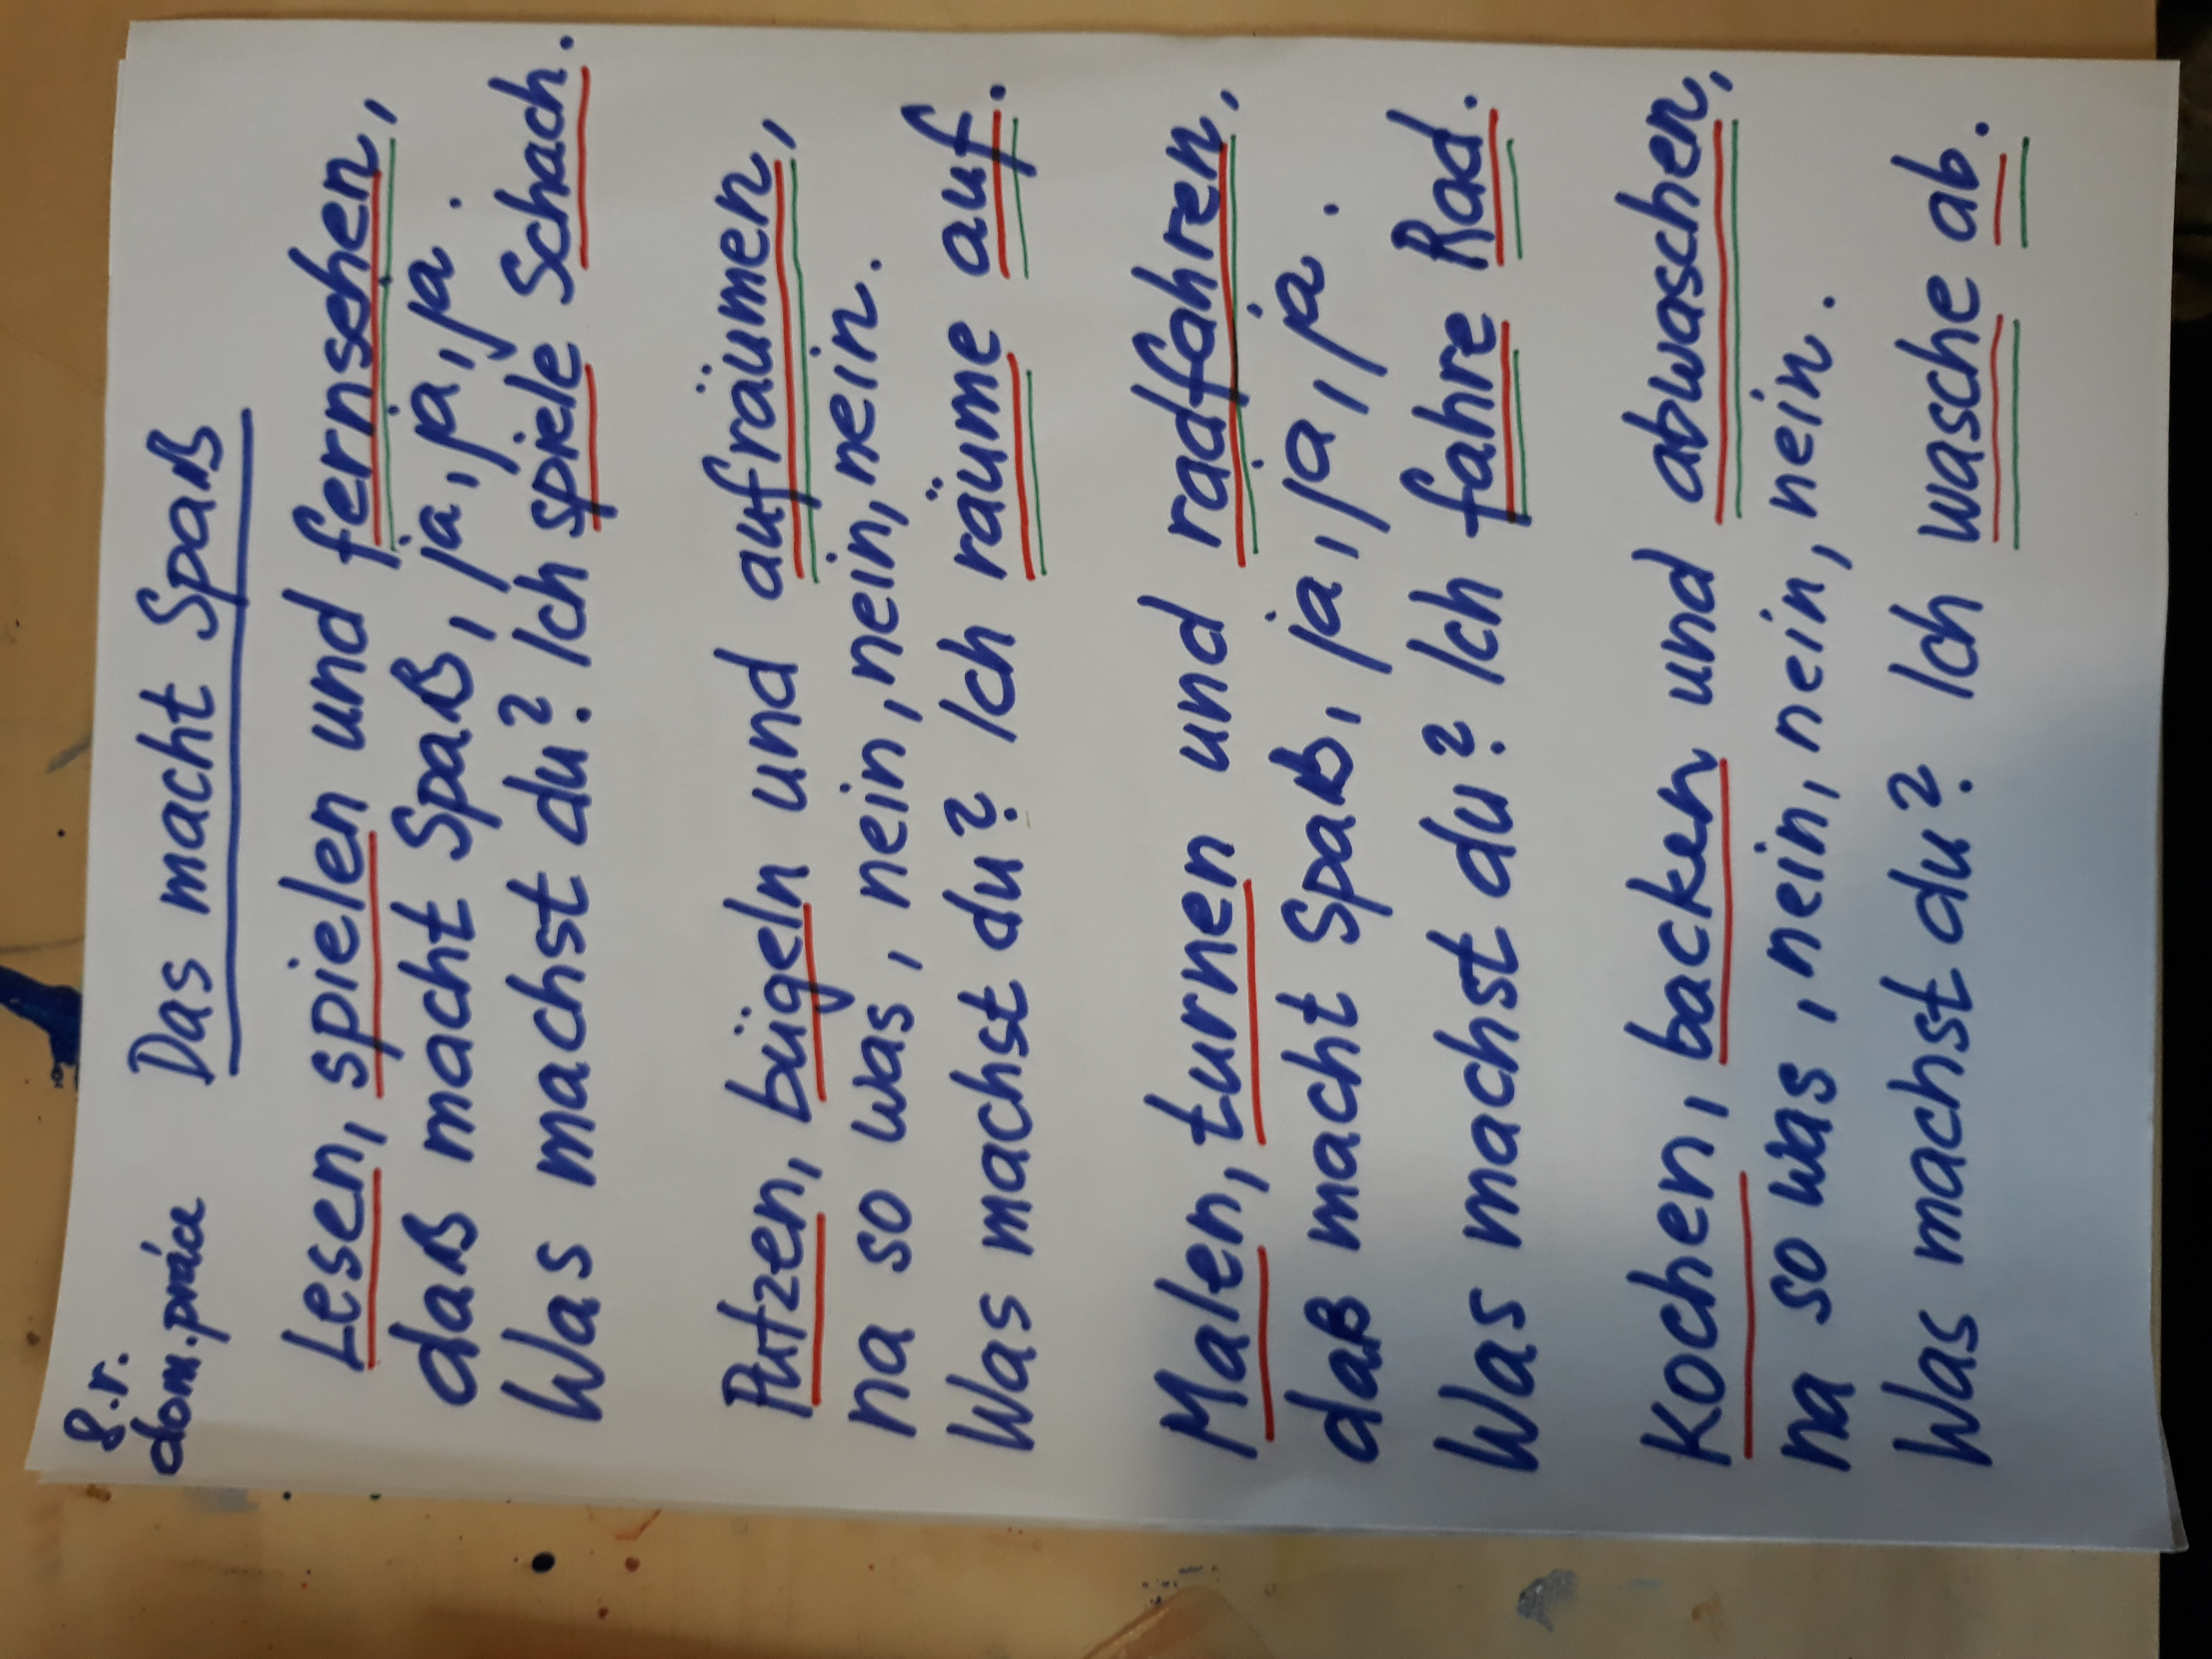 8.r.
dom.práce Das macht Spaß
Lesen, spielen und fernsehen,
daß macht Spaß, ja, ja, ja.
Was machst du? Ich spiele Schach.
Putzen, bügeln und aufräumen,
na so was, nein, nein, nein, nein.
Was machst du? Ich räume auf.
Malen, turnen und radfahren,
daß macht Spaß, ja, ja, ja.
Was machst du? Ich fahre Rad.
Kochen, backen und abwaschen,
na so was, nein, nein, nein, nein.
Was machst du? Ich wasche ab.